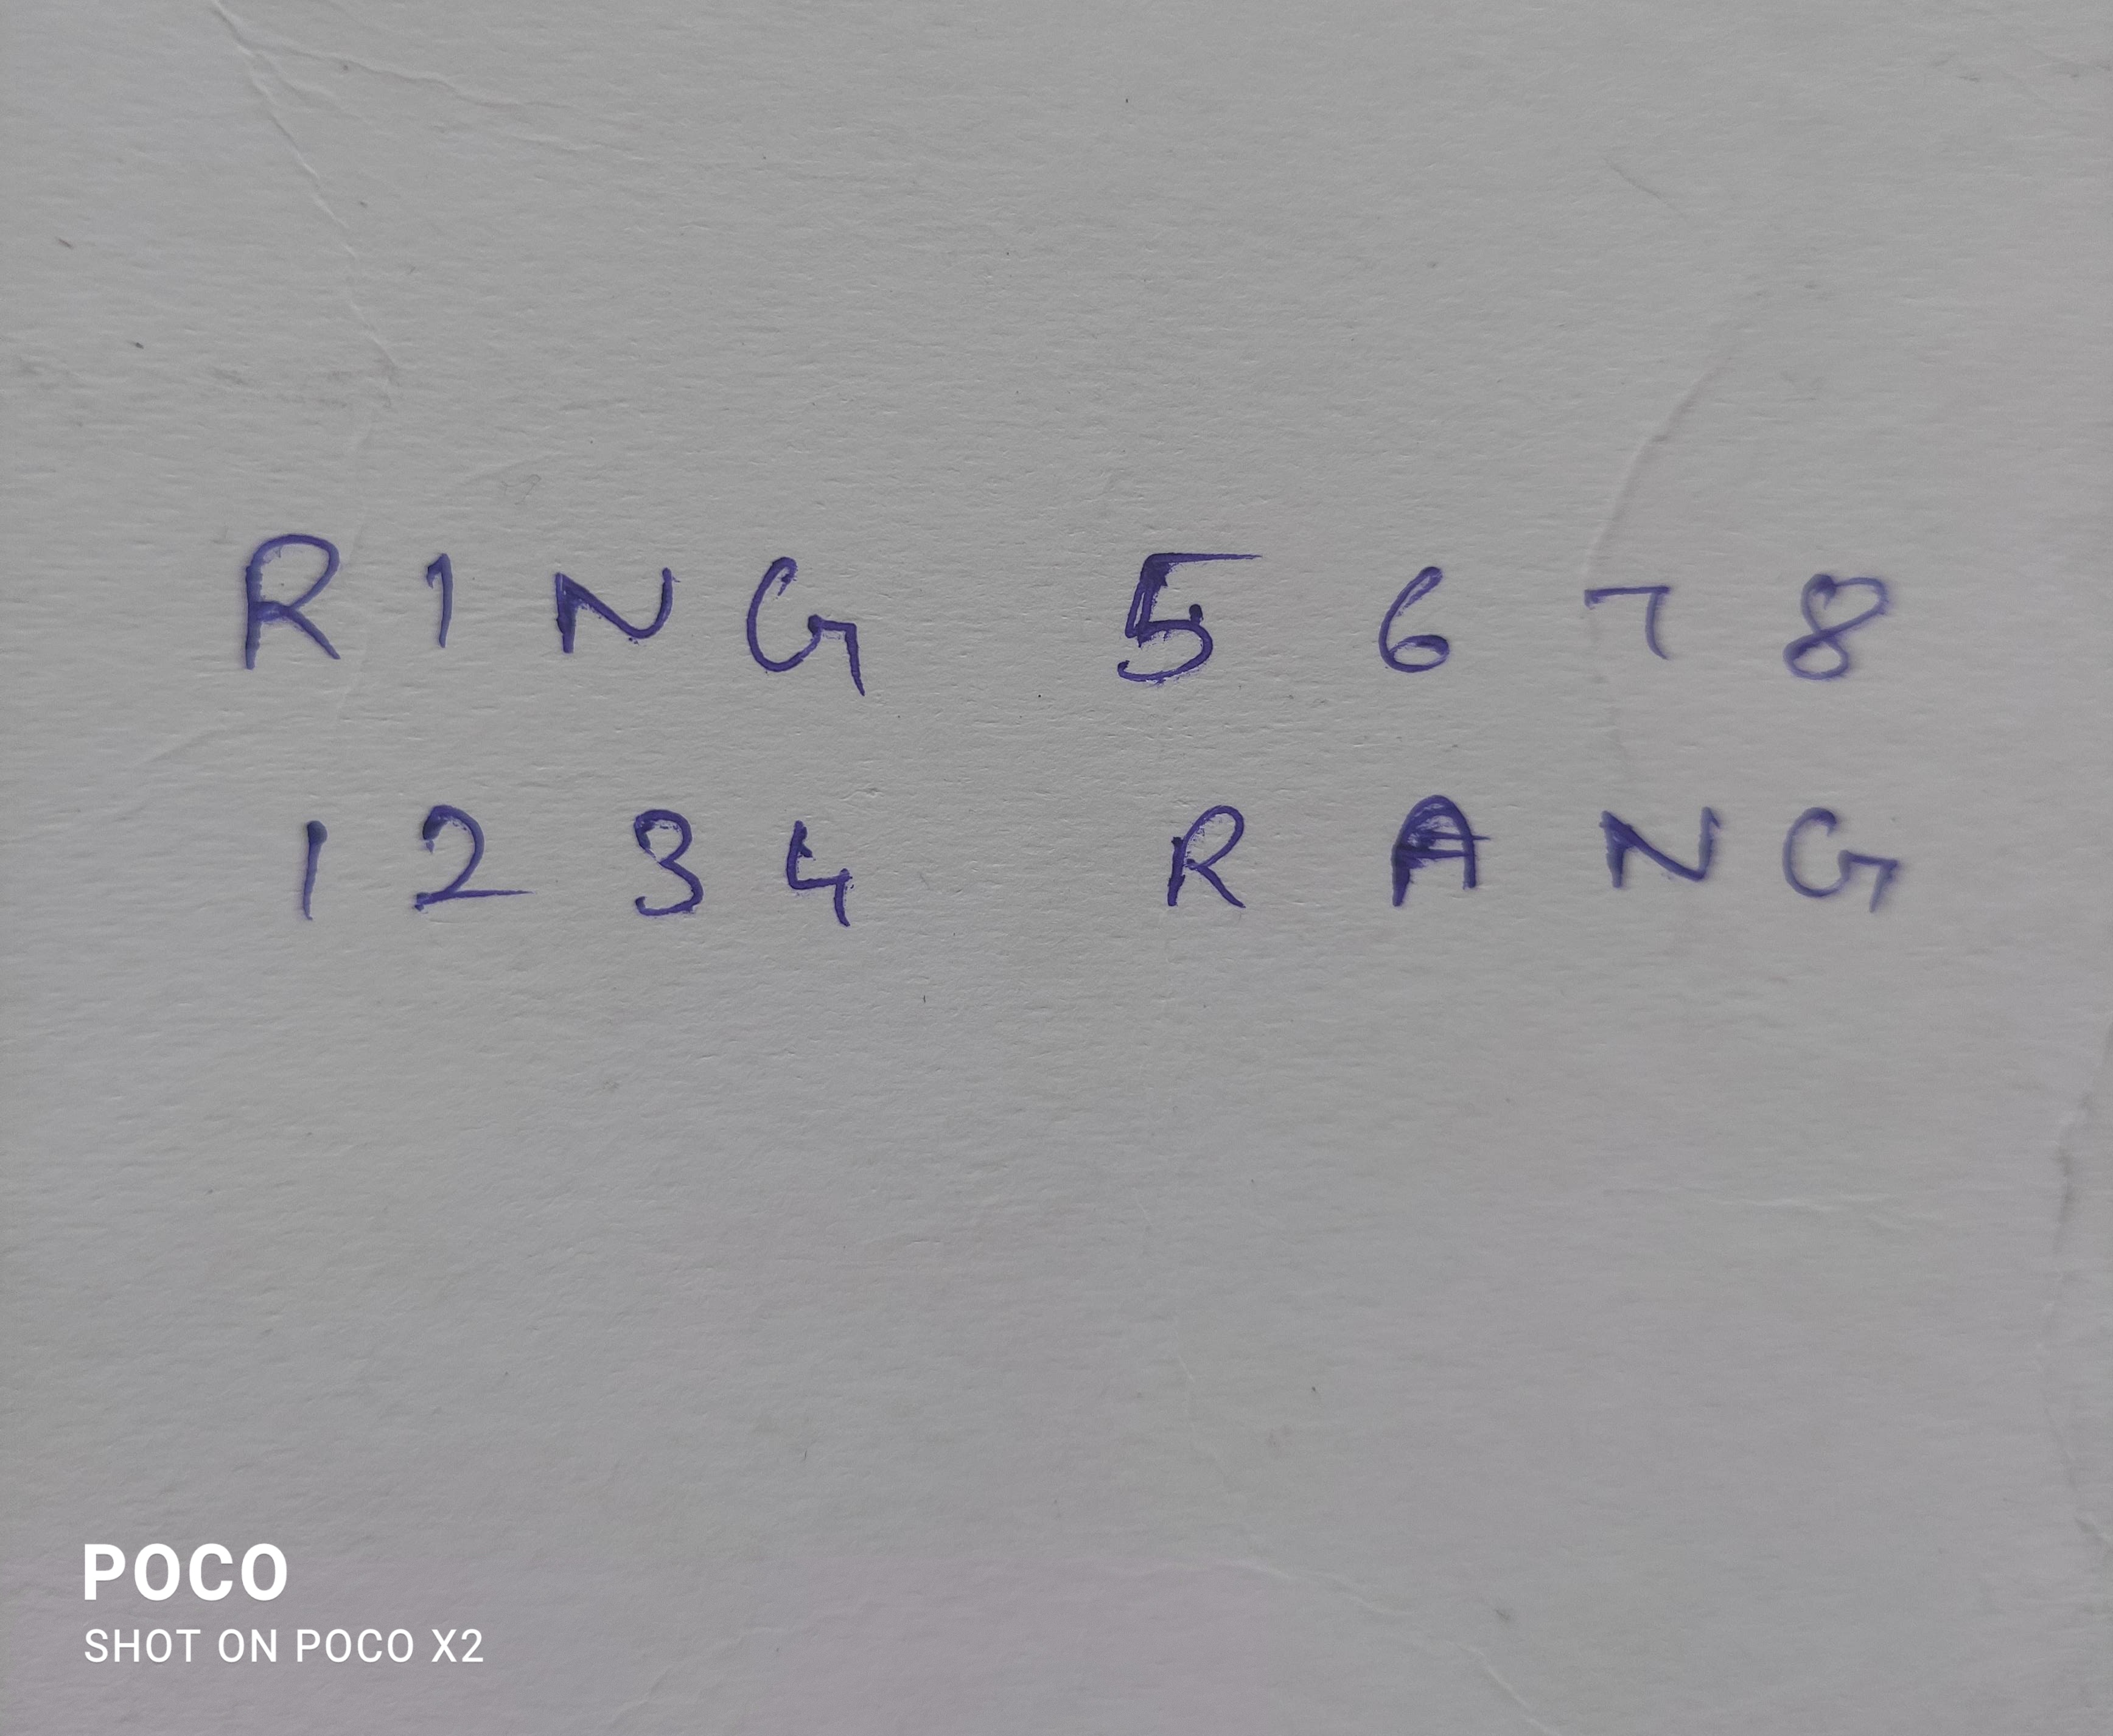 R I N G 5 6 7 8
1 2 3 4 R A N G
POCO
SHOT ON POCO X2